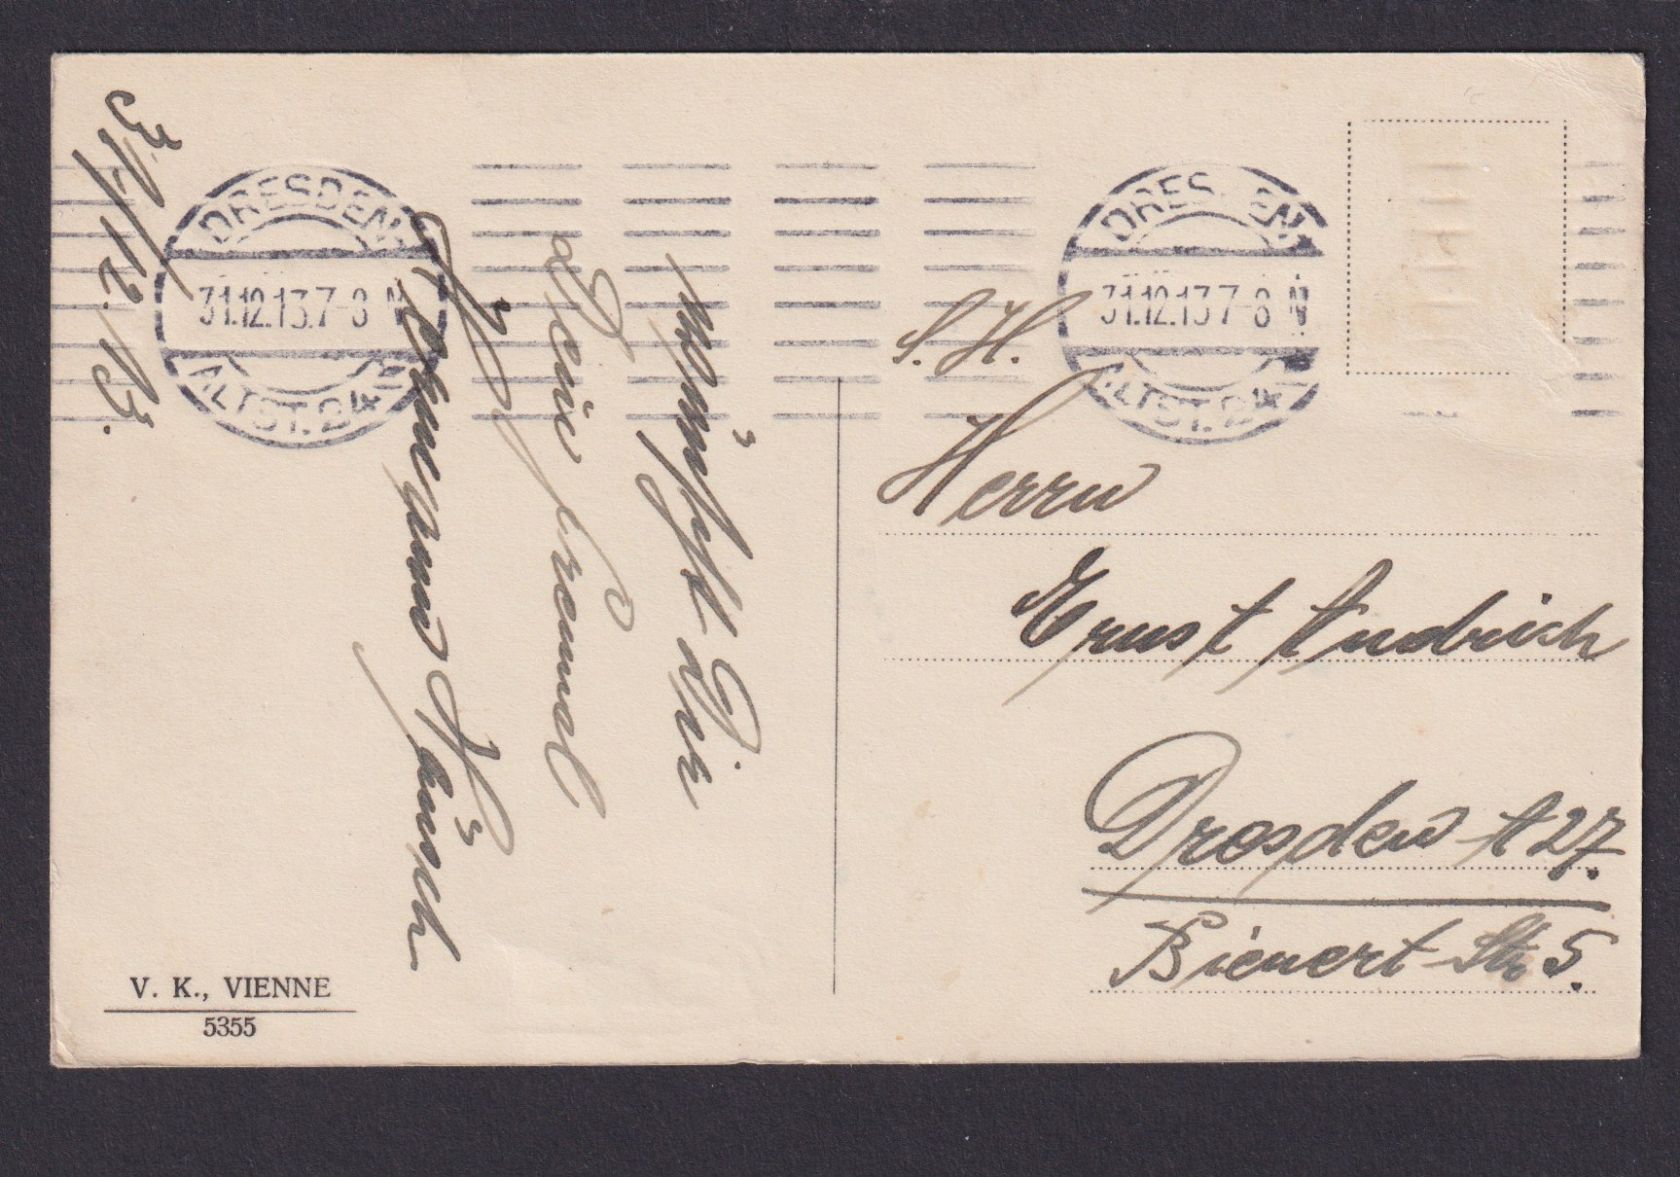 31/12.13.
DRESDEN
31.12.13.7-8 N
ALTST. 24
wünscht Dir
Dein Freund
Hermann Hänsch
V. K., VIENNE
5355
DRESDEN
31.12.13 7-8 N
ALTST. 24
S. H.
Herrn
Ernst Andrich
Dresden A 27.
Bienert-Str 5.